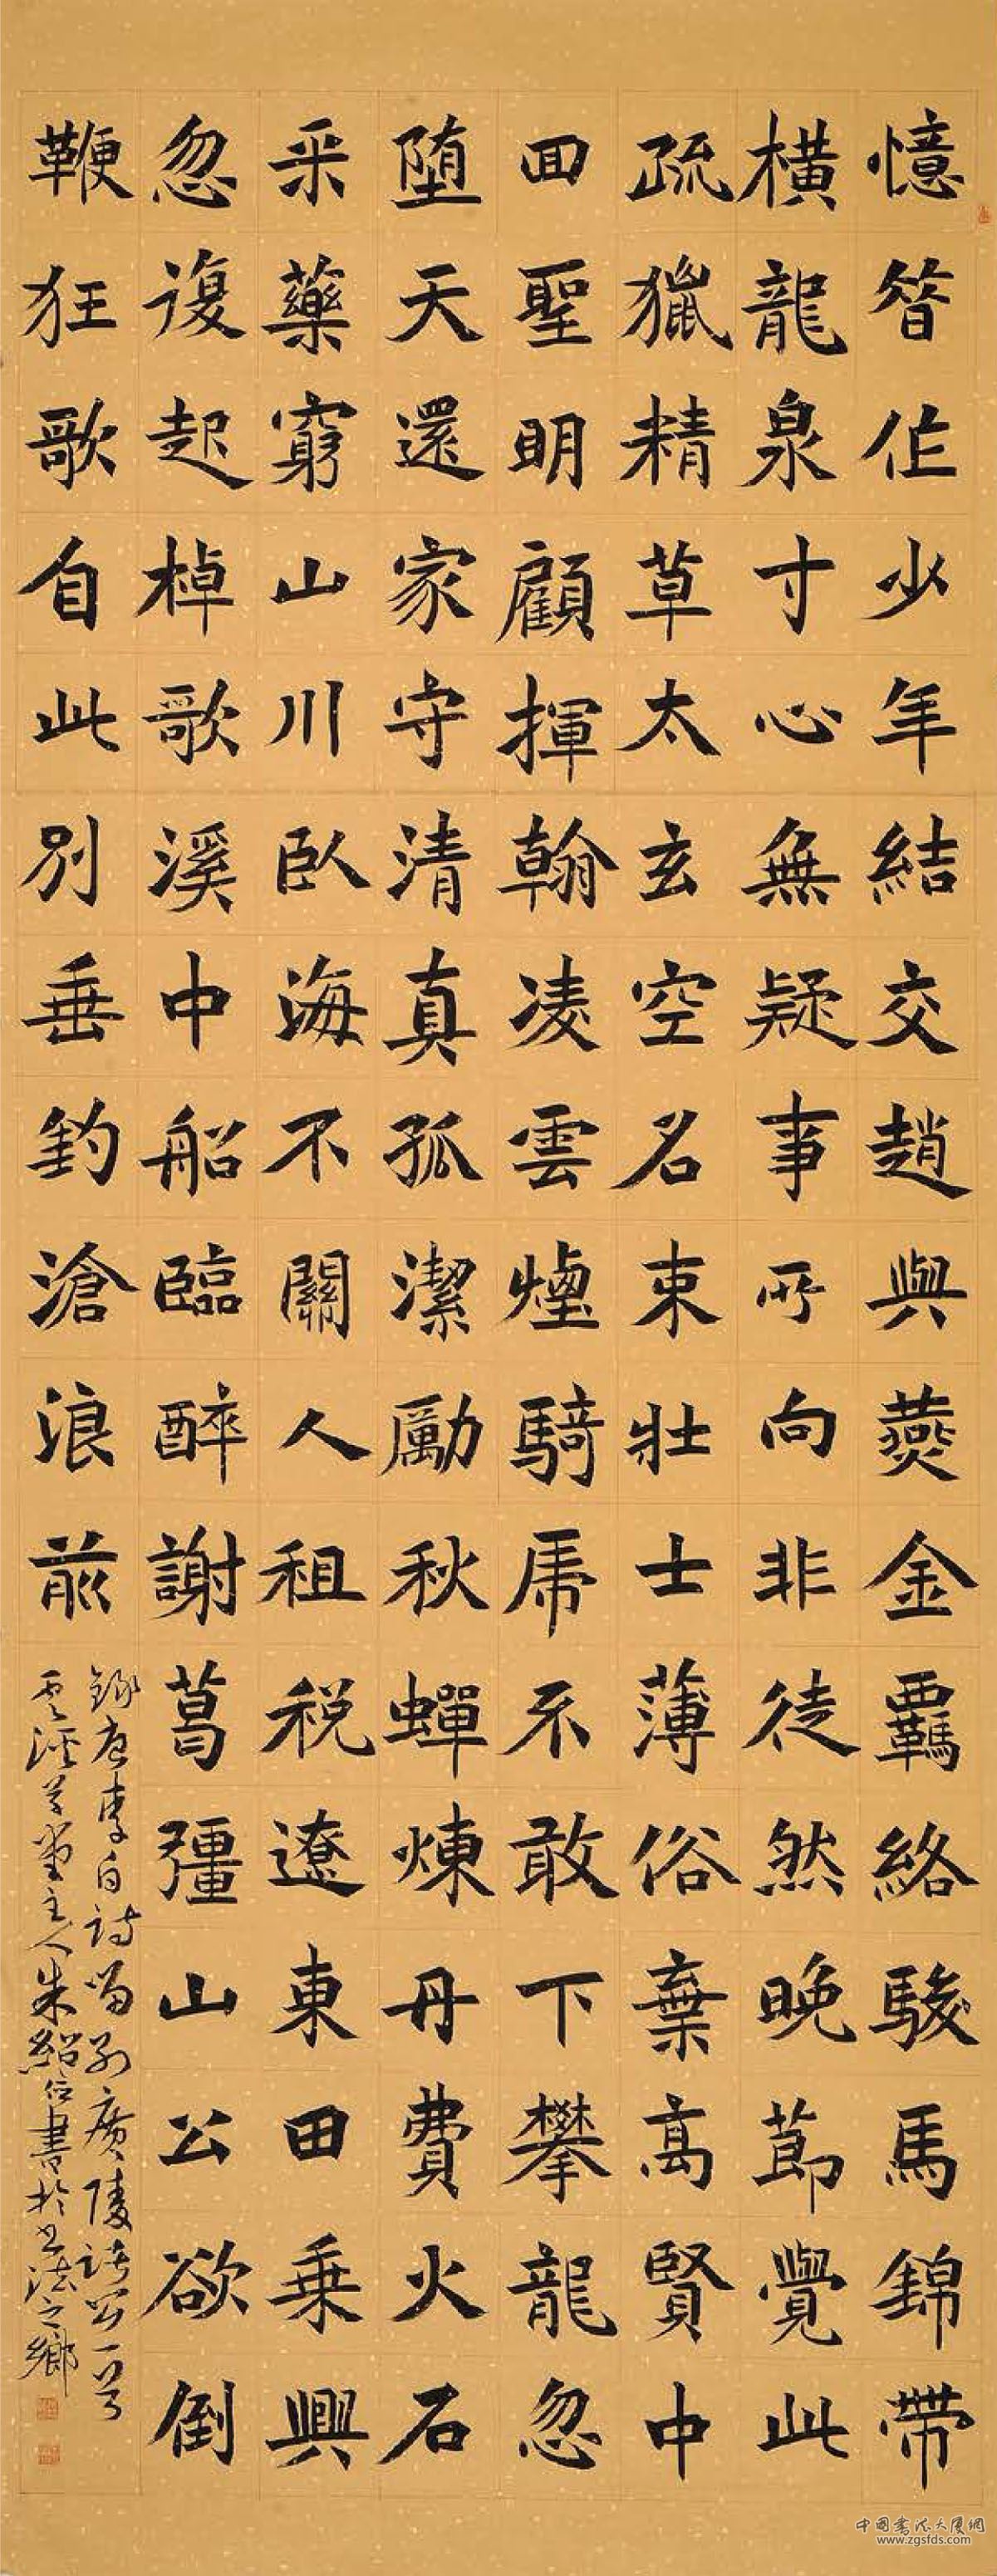 憶昔作少年結交趙與燕金羈絡駿馬錦帶
橫龍泉寸心無疑事所向非徒然晚節覺此
疏獵精草太玄空名束壯士薄俗棄高賢中
回聖明顧揮翰凌雲煙騎虎不敢下攀龍忽
堕天還家守清真孤潔勵秋蟬煉丹費火石
采藥窮山川臥海不關人租税遼東田乘興
忽復起棹歌溪中船臨醉謝葛彊山公欲倒
鞭狂歌自此別垂釣滄浪前
錄唐李白詩留別廣陵諸公一首
草堂主人朱紹書於書法之鄉
中国书法大厦網
www.zgsfds.com